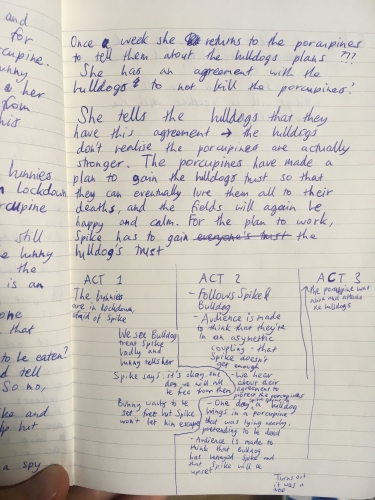 and
for
porcupine.
bunny
a her
from
his
bunnies
in lockdown
porcupine
still
the bunny
the
is an
one
that
to be eaten?
d tell
So no,
ke and
lp her
a spy
Once a week she returns to the porcupines
to tell them about the bulldogs plans ???
She has an agreement with the
bulldogs to not kill the porcupines?
She tells the bulldogs that they
have this agreement → the bulldogs
don't realise the porcupines are actually
stronger. The porcupines have made a
plan to gain the bulldogs trust so that
they can eventually lure them all to their
deaths, and the fields will again be
happy and calm. For the plan to work,
Spike has to gain everyone's trust the
bulldog's trust
ACT 1
The bunnies
are in lockdown,
afraid of Spike
We see Bulldog
treat Spike
badly and
bunny tells her
Spike says: it's okay, one
day we will all
be free from them
Bunny wants to be
set free but Spike
won't let him escape
ACT 2
- Follows Spike &
Bulldog
- Audience is made
to think that they're
in an asymettric
coupling - that
Spike doesn't
get enough
- We hear
about their
agreement to
protect the porcupines
- One day a bulldog
brings in a porcupine
that was lying nearby,
pretending to be dead
- Audience is made to
think that Bulldog
has betrayed Spike and
that Spike will be
upset
ACT 3
The porcupine was
alive and attacks
the bulldogs
Turns out
it was a
trap